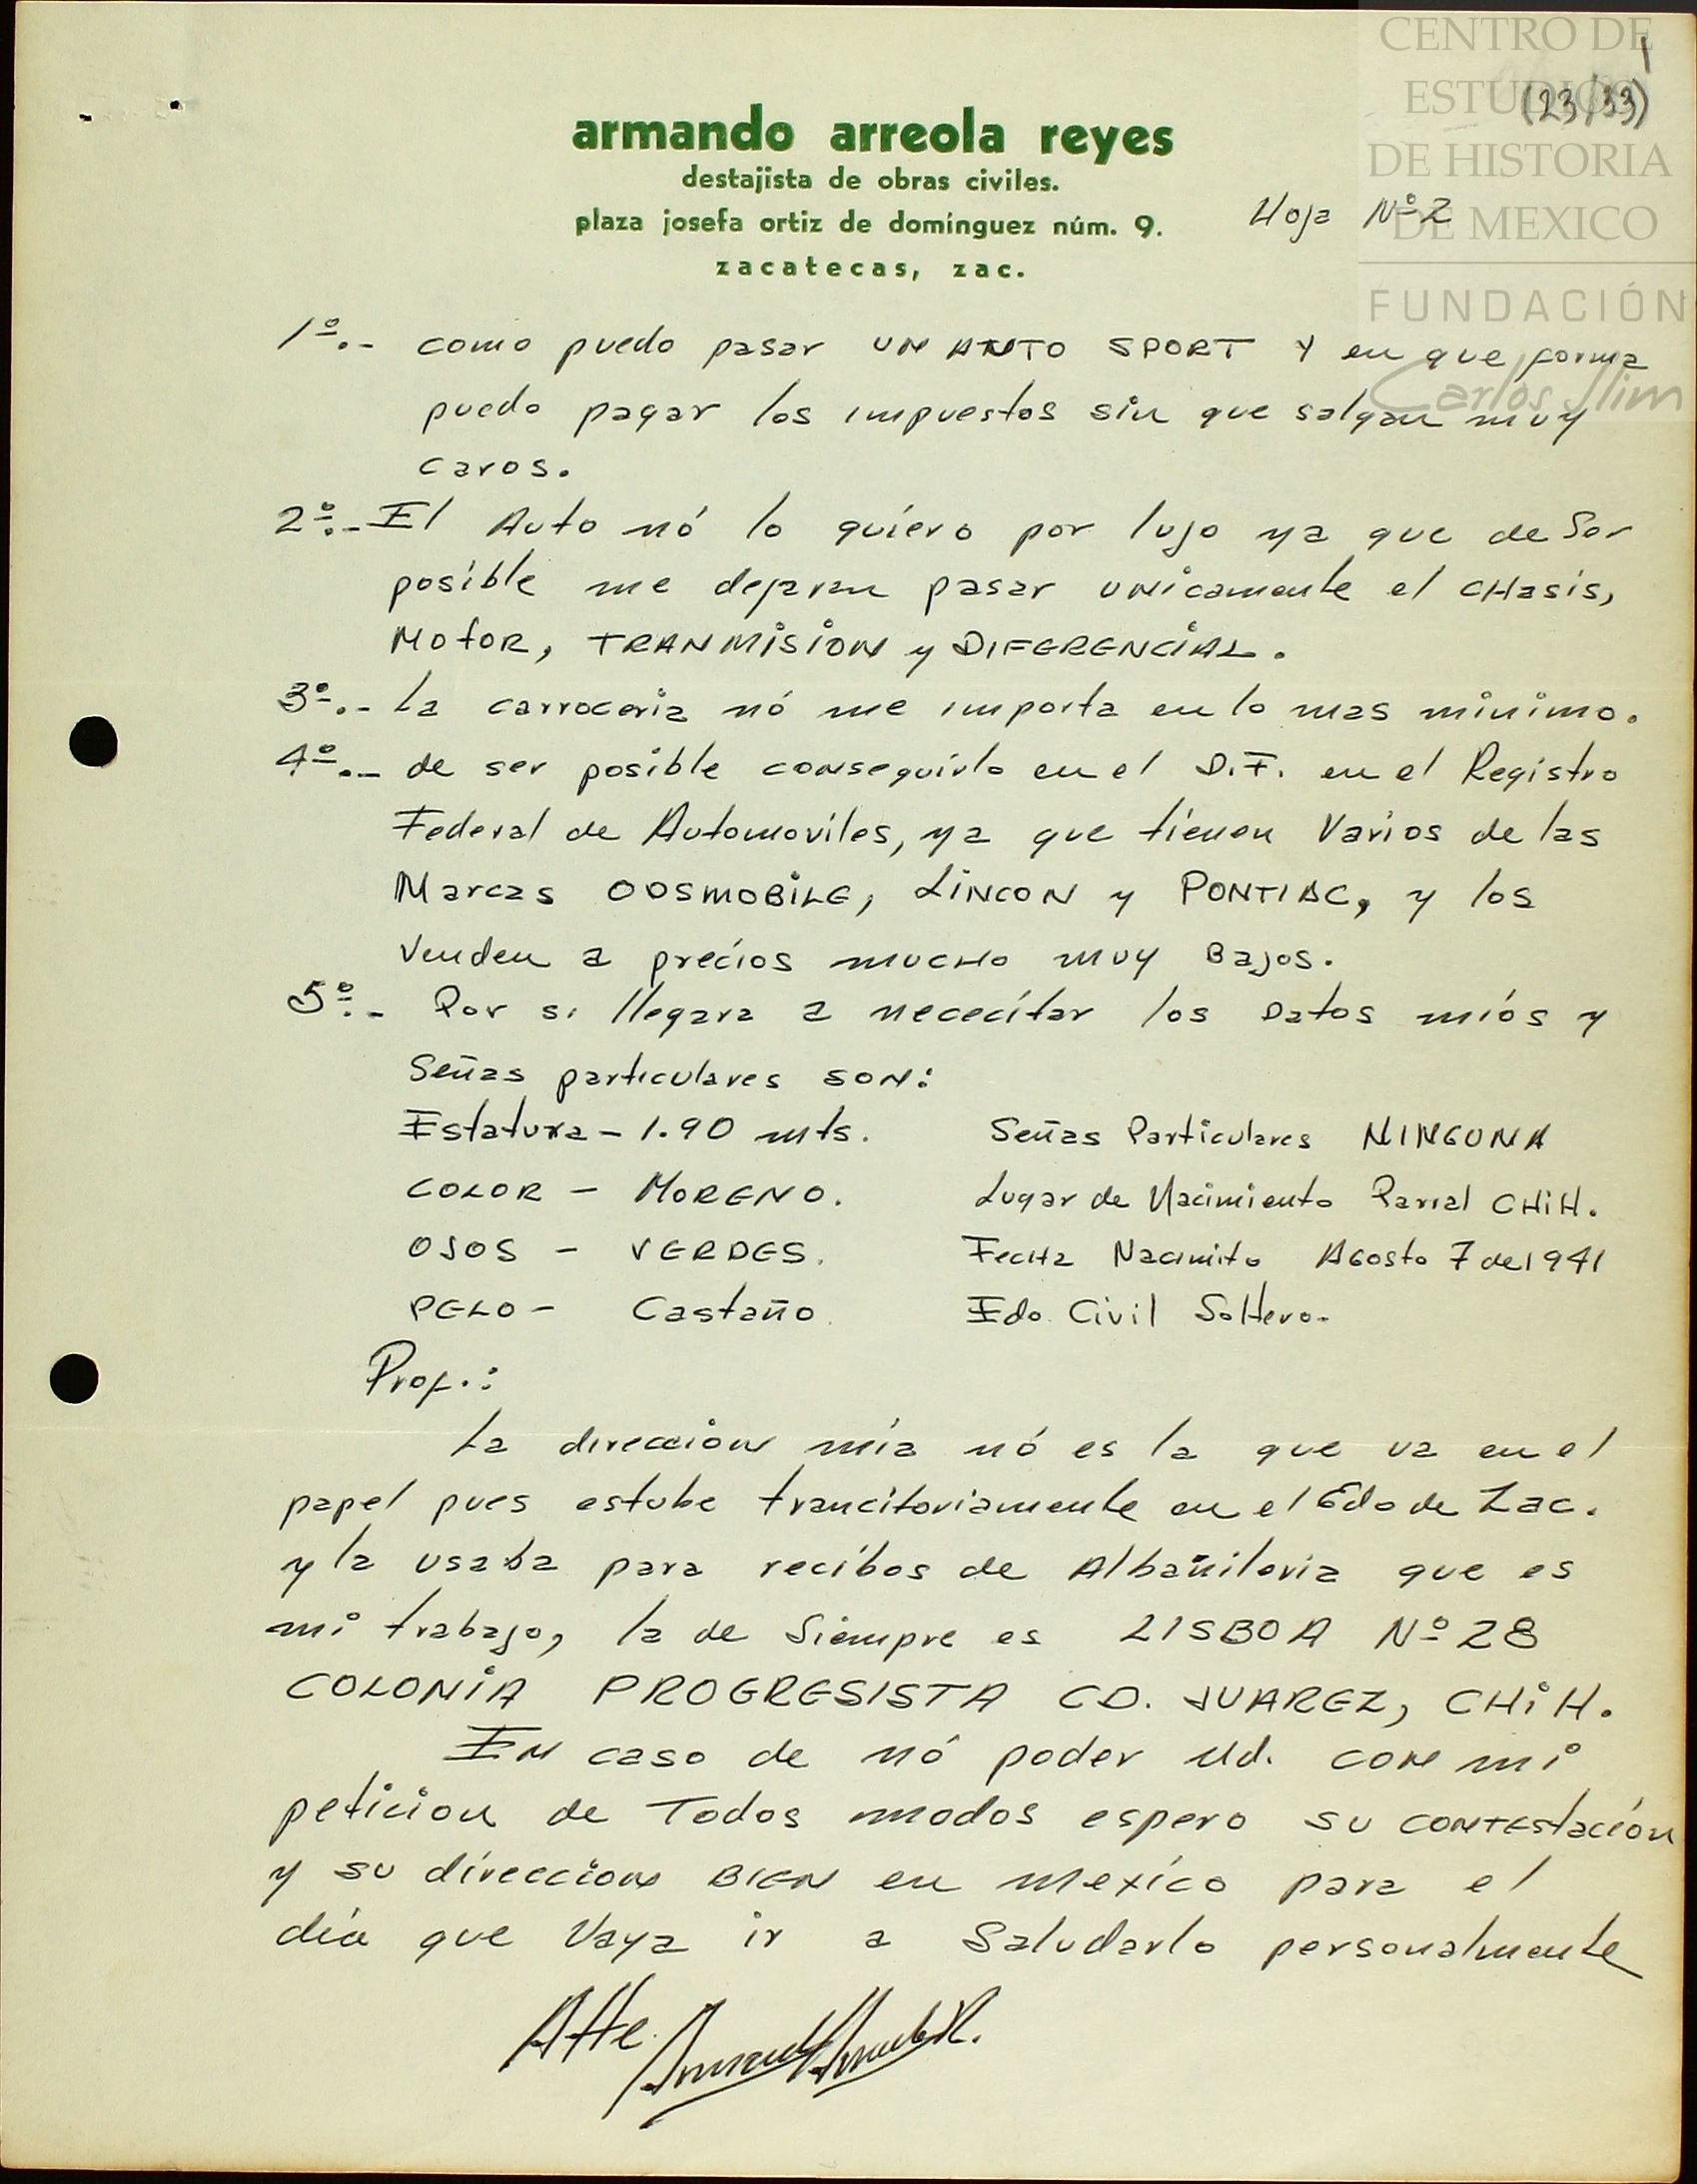 CENTRO DE
ESTUDIOS
DE HISTORIA
DE MEXICO
FUNDACIÓN
Carlos Slim
1
(23/33)
armando arreola reyes
destajista de obras civiles.
plaza josefa ortiz de domínguez núm. 9.
zacatecas, zac.
Hoja Nº 2
1º.- como puedo pasar UN AUTO SPORT Y en que forma
puedo pagar los impuestos sin que salgan muy
caros.
2º.- El Auto nó lo quiero por lujo ya que de Ser
posible me dejaran pasar UNicamente el CHasis,
MOTOR, TRANMISION y DIFERENCIAL.
3º.- La carroceria nó me importa en lo mas minimo.
4º.- de ser posible conseguirlo en el D.F. en el Registro
Federal de Automoviles, ya que tienen Varios de las
Marcas ODSMOBILE, LINCON y PONTIAC, y los
Venden a precios mucho muy Bajos.
5º.- Por si llegara a nececitar los Datos míos y
Señas particulares SON:
Estatura - 1.90 mts. Señas Particulares NINGUNA
COLOR - MORENO. Lugar de Nacimiento Parral CHIH.
OJOS - VERDES. Fecha Nacimito Agosto 7 de 1941
PELO - Castaño. Edo. Civil Soltero.
Prof.:
La direccion mía nó es la que va en el
papel pues estube trancitoriamente en el Edo de Zac.
y la usaba para recibos de Albañileria que es
mi trabajo, la de Siempre es LISBOA Nº 28
COLONIA PROGRESISTA CD. JUAREZ, CHIH.
EN caso de nó poder Ud. con mi
peticion de Todos modos espero su contestación
y su direccion BIEN en Mexico para el
día que Vaya ir a Saludarlo personalmente
Atte.